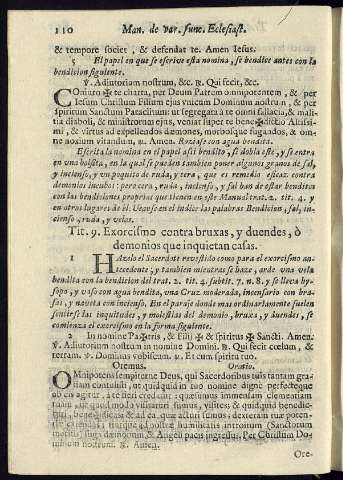 110 Man. de var. func. Eclesiast.
& tempore societ, & defendat te. Amen Iesus.
5 El papel en que se escrive esta nomina, se bendice antes con la
bendicion siguiente.
V. Adiutorium nostrum, &c. R. Qui fecit, &c.
COniuro ✠ te charta, per Deum Patrem omnipotentem, & per
Iesum Christum Filium ejus vnicum Dominum nostrum, & per
Spiritum Sanctum Paraclitum: ut segregata à te omni fallacia, & mali
tia diaboli, & ministrorum ejus, veniat super te bene✠dictio Altissi-
mi, & virtus ad expellendos dæmones, morbosque fugandos, & om
ne noxium vitandum, n. Amen. Roziase con agua bendita.
Escrita la nomina en el papel assi bendito, se dobla este, y se entra
en vna bolsita, en la qual se pueden tambien poner algunos granos de sal,
y incienso, y vn poquito de ruda, y cera, que es remedio eficaz contra
demonios incubos: pero cera, ruda, incienso, y sal han de estar benditas
con las bendiciones proprias que tienen en este Manual trat. 2. tit. 4. y
en otros lugares de él. Veanse en el Indice las palabras Bendicion, sal, in-
cienso, ruda, y velas.
TIT. 9. Exorcismo contra bruxas, y duendes, ò
demonios que inquietan casas.
1 HAzelo el Sacerdote revestido como para el exorcismo an-
tecedente; y tambien mientras se haze, arde vna vela
bendita con la bendicion del trat. 2. tit. 4. subtit. 7. n. 8. y se lleva hy-
sopo, y vaso con agua bendita, vna Cruz moderada, incensario con bra-
sas, y naveta con incienso. En el parage donde mas ordinariamente suelen
sentirse las inquietudes, y molestias del demonio, bruxa, y duendes, se
comienza el exorcismo en la forma siguiente.
2 In nomine Pa✠tris, & Filij ✠ & Spiritus ✠ Sancti. Amen.
V. Adiutorium nostrum in nomine Domini. R. Qui fecit cœlum, &
terram. V. Dominus vobiscum. R. Et cum spiritu tuo.
Oremus. Oratio.
OMnipotens sempiterne Deus, qui Sacerdotibus tuis tantam gra-
tiam contulisti, ut quidquid in tuo nomine dignè perfectèque
ob eis agitur, à te fieri credatur: quæsumus immensam clementiam
tuam, ut quod modo visitaturi sumus, visites; & quidquid benedic-
turi, benedicas; & ad ea quæ acturi sumus, dexteram tuæ poten-
tiæ extendas; fiatque ad nostræ humilitatis introitum (Sanctorum
meritis) fuga dæmonum, & Angeli pacis ingressus. Per Christum Do-
minum nostrum. R. Amen.
Ore-